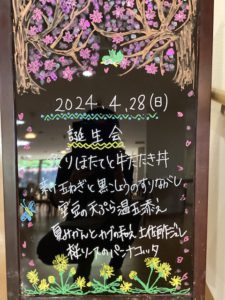 2024.4.28(日)
誕生会
ほたてと牛たたき丼
新玉ねぎと黒こしょうのすりながし
の天ぷら 温玉添え
夏みかんとカブの和え 土佐酢ジュレ
桜ソースのパンナコッタ